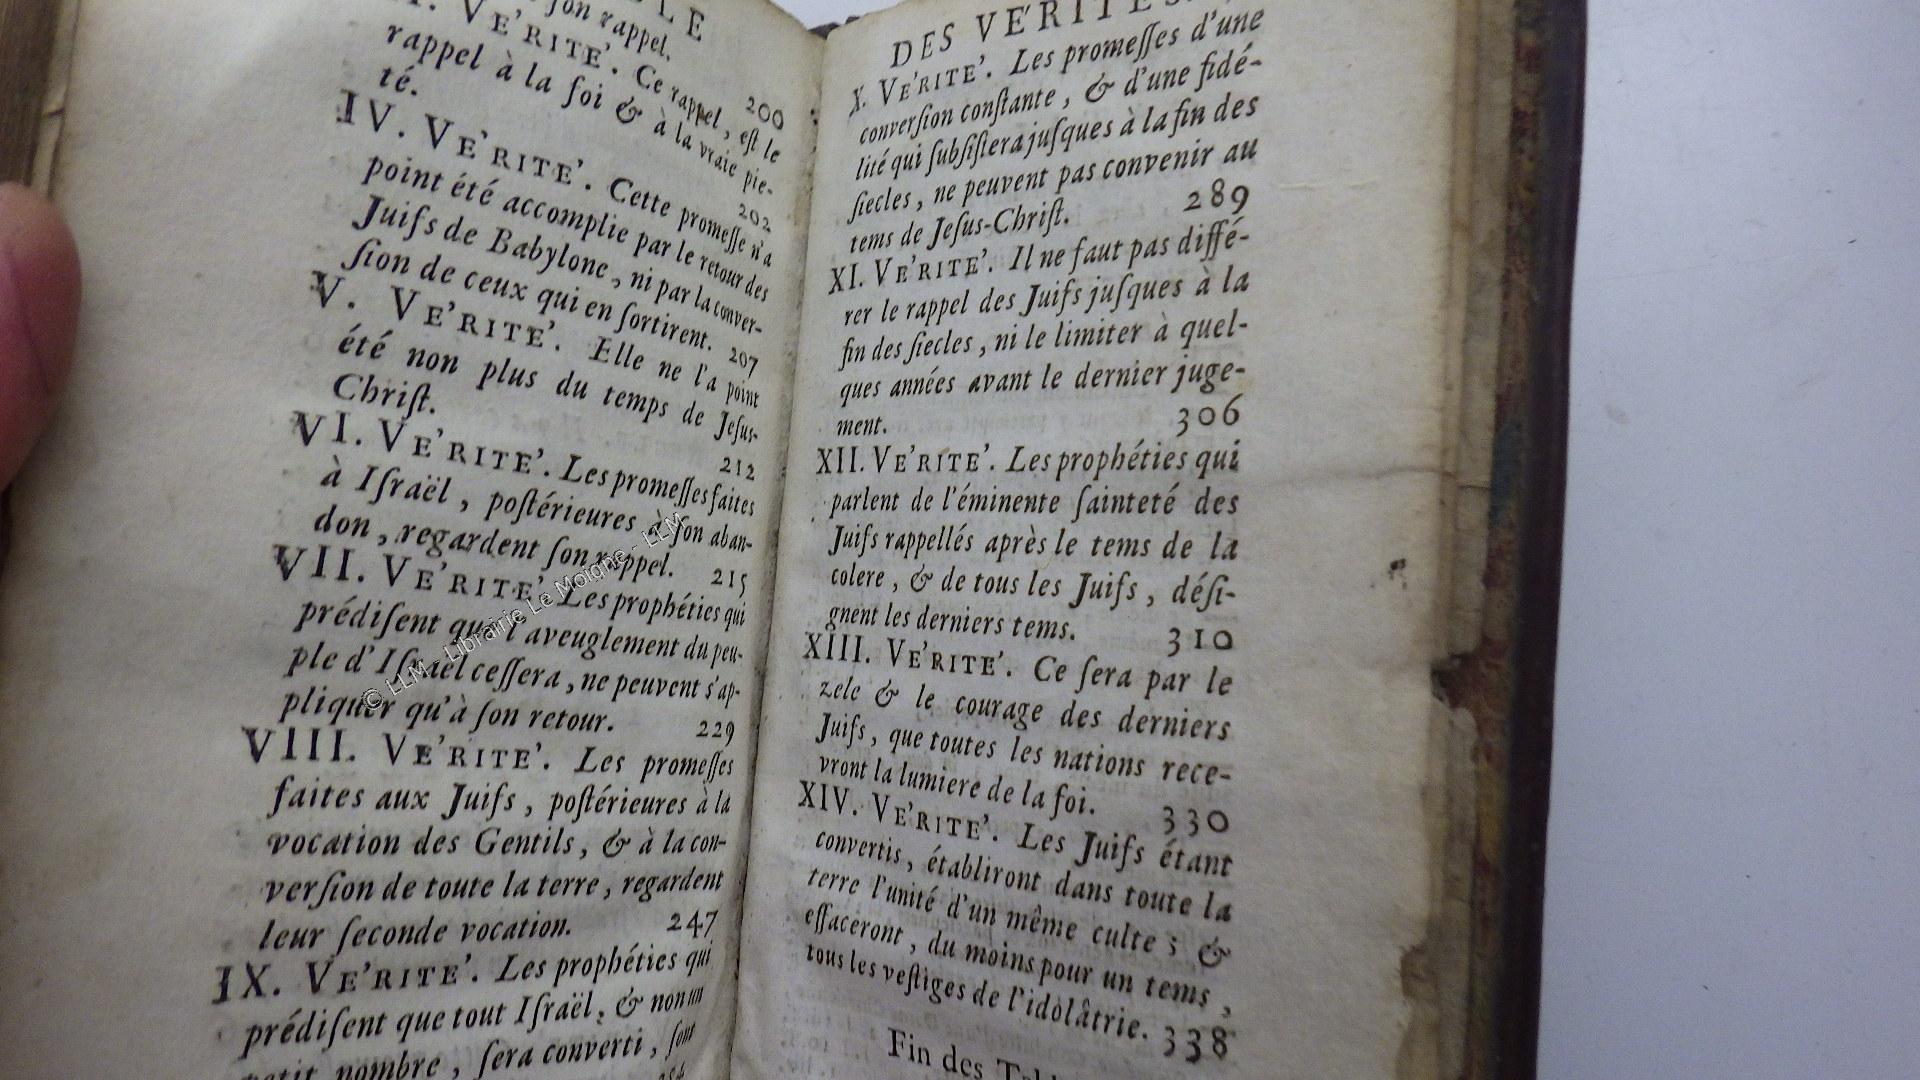 LE
son rappel. 200
VE'RITE'. Ce rappel, est le
rappel à la foi & à la vraie pie-
té. 202
IV. VE'RITE'. Cette promeſſe n'a
point été accomplie par le retour des
Juifs de Babylone, ni par la conver-
ſion de ceux qui en ſortirent. 207
V. VE'RITE'. Elle ne l'a point
été non plus du temps de Jeſus-
Chriſt. 212
VI. VE'RITE'. Les promeſſes faites
à Iſraël, poſtérieures à ſon aban-
don, regardent ſon rappel. 215
VII. VE'RITE'. Les prophéties qui
prédiſent que l'aveuglement du peu-
ple d'Iſraël ceſſera, ne peuvent s'ap-
pliquer qu'à ſon retour. 229
VIII. VE'RITE'. Les promeſſes
faites aux Juifs, poſtérieures à la
vocation des Gentils, & à la con-
verſion de toute la terre, regardent
leur ſeconde vocation. 247
IX. VE'RITE'. Les prophéties qui
prédiſent que tout Iſraël, & non un
petit nombre, ſera converti, ſont
DES VÉRITE
X. VE'RITE'. Les promeſſes d'une
converſion conſtante, & d'une fidé-
lité qui ſubſiſtera juſques à la fin des
ſiecles, ne peuvent pas convenir au
tems de Jeſus-Chriſt. 289
XI. VE'RITE'. Il ne faut pas diffé-
rer le rappel des Juifs juſques à la
fin des ſiecles, ni le limiter à quel-
ques années avant le dernier juge-
ment. 306
XII. VE'RITE'. Les prophéties qui
parlent de l'éminente ſainteté des
Juifs rappellés après le tems de la
colere, & de tous les Juifs, déſi-
gnent les derniers tems. 310
XIII. VE'RITE'. Ce ſera par le
zele & le courage des derniers
Juifs, que toutes les nations rece-
vront la lumiere de la foi. 330
XIV. VE'RITE'. Les Juifs étant
convertis, établiront dans toute la
terre l'unité d'un même culte ; &
effaceront, du moins pour un tems,
tous les veſtiges de l'idolâtrie. 338
Fin des
© LLM - Librairie Le Moigne - LLM